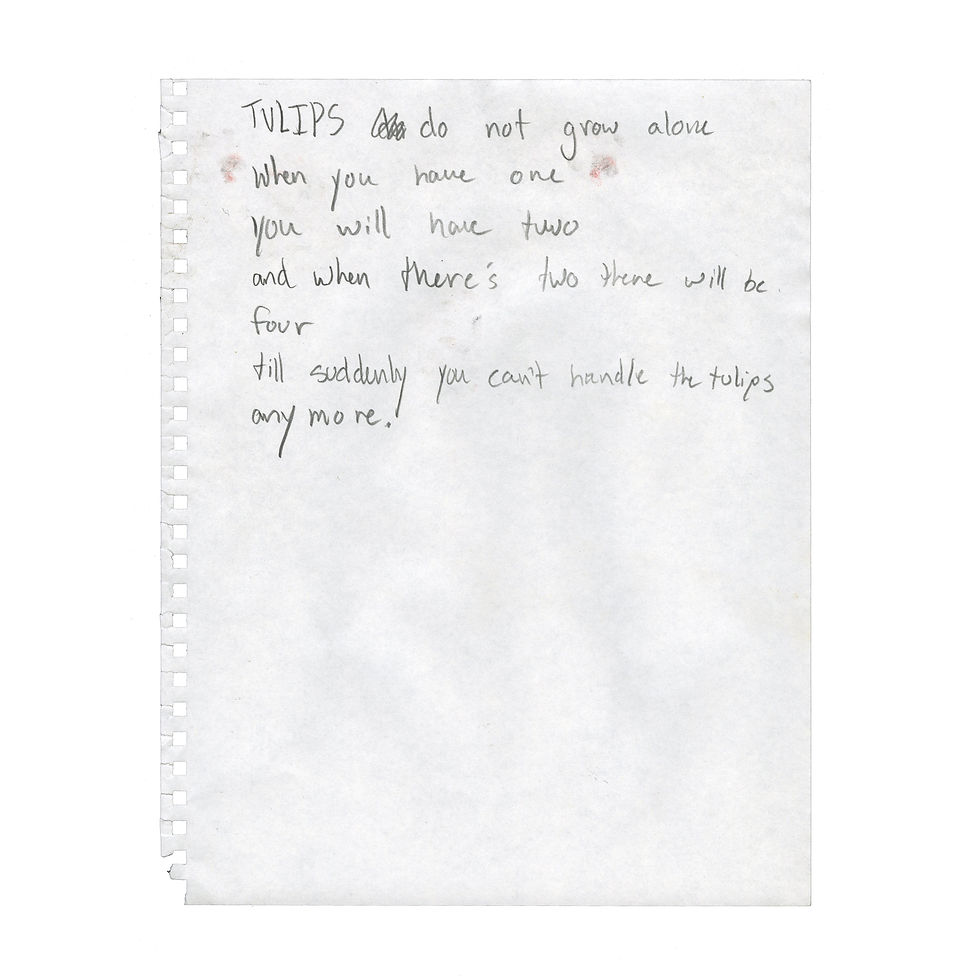 TULIPS do not grow alone
when you have one
you will have two
and when there's two there will be
four
till suddenly you can't handle the tulips
anymore.